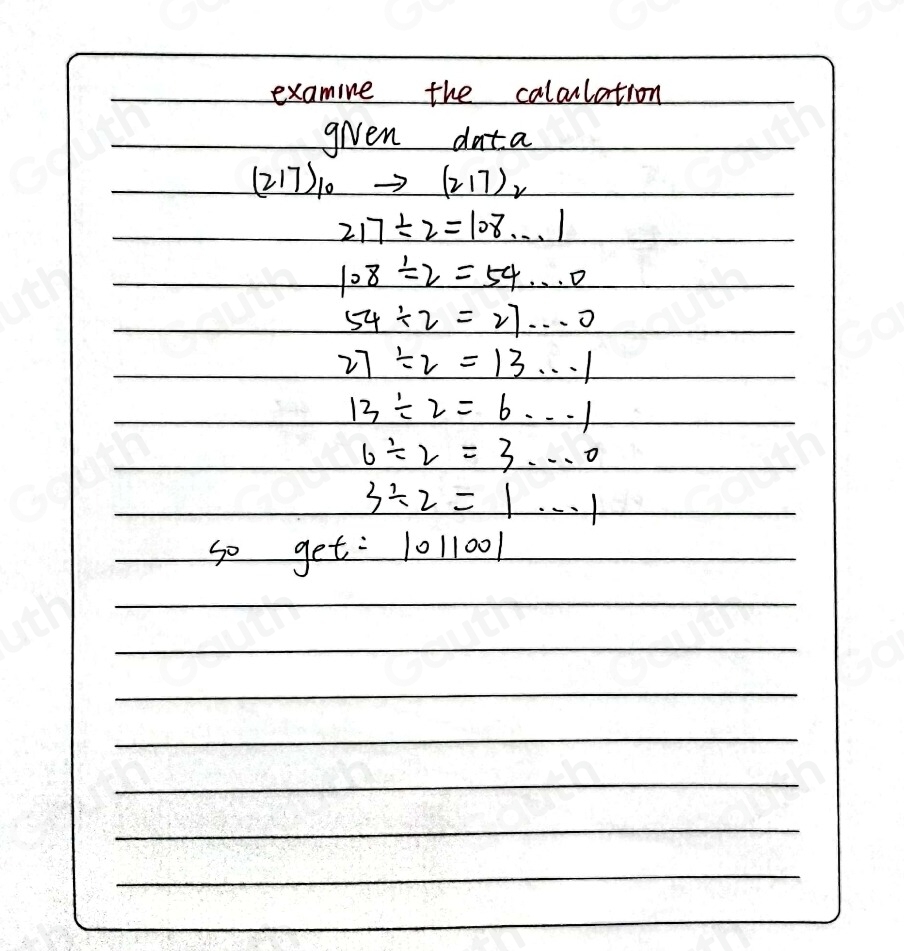 examine the calculation
given data
(217)₁₀ → (217)₂
217 ÷ 2 = 108 ... 1
108 ÷ 2 = 54 ... 0
54 ÷ 2 = 27 ... 0
27 ÷ 2 = 13 ... 1
13 ÷ 2 = 6 ... 1
6 ÷ 2 = 3 ... 0
3 ÷ 2 = 1 ... 1
so get: 1011001
Gauth